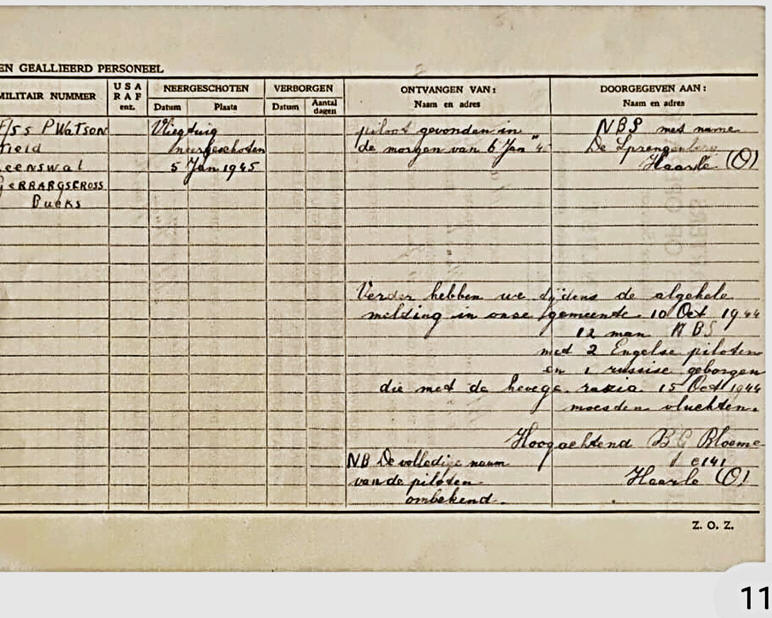 EN GEALLIEERD PERSONEEL
MILITAIR NUMMER
USA RAF enz.
NEERGESCHOTEN
Datum Plaats
VERBORGEN
Datum Aantal dagen
ONTVANGEN VAN:
Naam en adres
DOORGEGEVEN AAN:
Naam en adres
P WATSON Vliegtuig piloot gevonden in NBS met name
field neergeschoten de morgen van 6 Jan "45 De Sprengenberg
eenswal 5 Jan 1945 Haarle (O)
GERRARGSCROSS
Bucks
Verder hebben we tijdens de algehele
melding in onze gemeente 10 Oct 1944
12 man NBS
met 2 Engelse piloten
en 1 russise geborgen
die met de hevege razia 15 Oct 1944
moesden vluchten.
Hoogachtend B.G Bloeme
NB De volledige naam e141
van de piloten Haarle (O)
ombekend.
Z. O. Z.
11